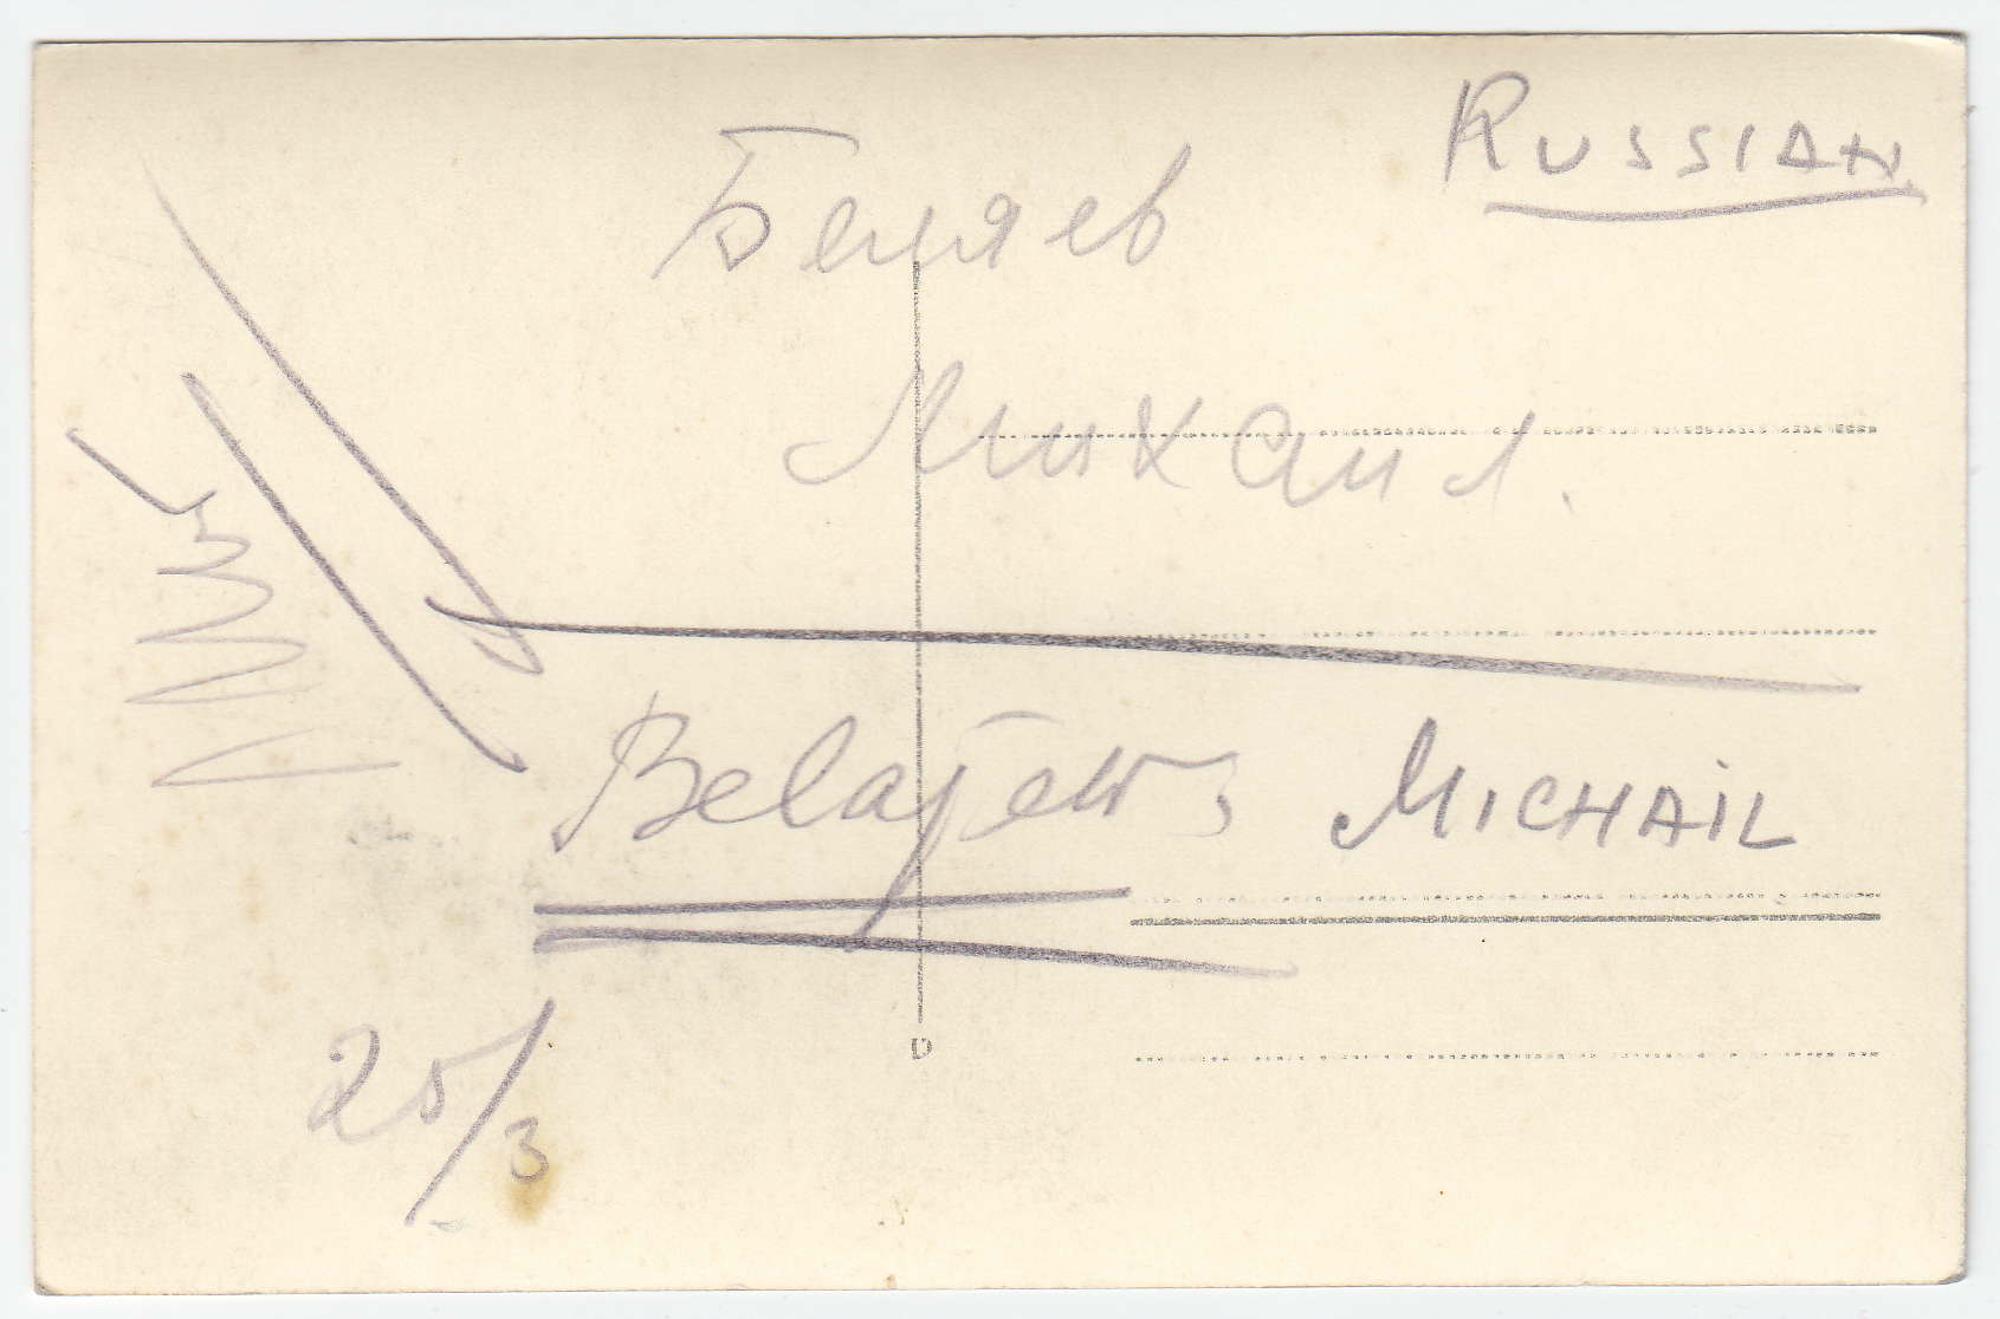 RUSSIAN
Беляев
Михаил.
Belajew, MICHAIL
25/3